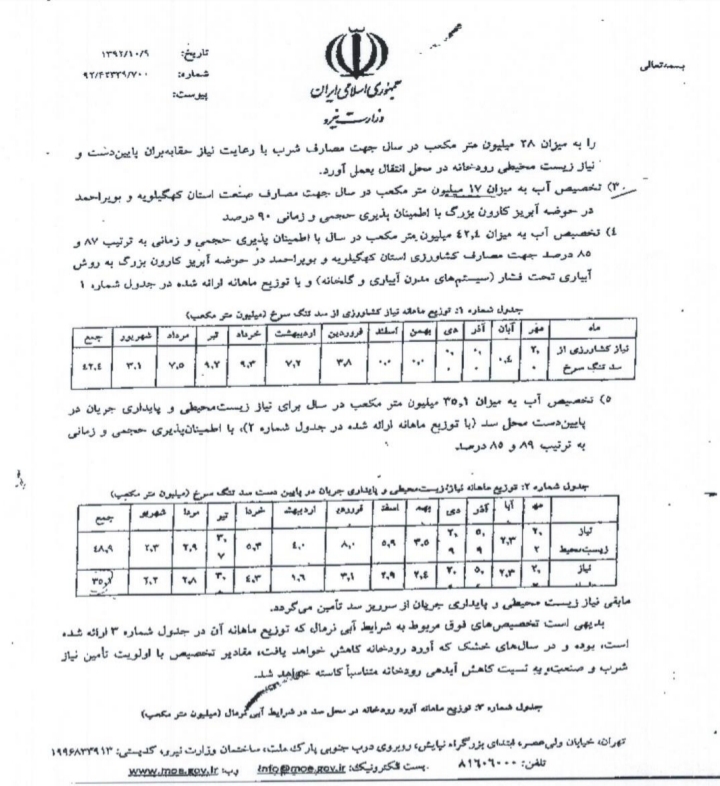 بسمه‌تعالی
جمهوری اسلامی ایران
وزارت نیرو
تاریخ: ۱۳۹۲/۱۰/۹
شماره: ۹۲/۴۲۳۳۹/۷۰۰
پیوست:
را به میزان ۲۸ میلیون متر مکعب در سال جهت مصارف شرب با رعایت نیاز حقابه‌بران پایین‌دست و
نیاز زیست محیطی رودخانه در محل انتقال بعمل آورد.
۳) تخصیص آب به میزان ۱۷ میلیون متر مکعب در سال جهت مصارف صنعت استان کهگیلویه و بویراحمد
در حوضه آبریز کارون بزرگ با اطمینان پذیری حجمی و زمانی ۹۰ درصد
۴) تخصیص آب به میزان ۴۲٫۴ میلیون متر مکعب در سال با اطمینان پذیری حجمی و زمانی به ترتیب ۸۷ و
۸۵ درصد جهت مصارف کشاورزی استان کهگیلویه و بویراحمد در حوضه آبریز کارون بزرگ به روش
آبیاری تحت فشار (سیستم‌های مدرن آبیاری و گلخانه) و با توزیع ماهانه ارائه شده در جدول شماره ۱
جدول شماره ۱: توزیع ماهانه نیاز کشاورزی از سد تنگ سرخ (میلیون متر مکعب)
ماه مهر آبان آذر دی بهمن اسفند فروردین اردیبهشت خرداد تیر مرداد شهریور جمع
نیاز کشاورزی از سد تنگ سرخ ۲٫۰ ۰٫۴ ۰٫۰ ۰٫۰ ۰٫۰ ۰٫۰ ۳٫۸ ۷٫۲ ۹٫۳ ۹٫۲ ۷٫۵ ۳٫۱ ۴۲٫۴
۵) تخصیص آب به میزان ۳۵٫۱ میلیون متر مکعب در سال برای نیاز زیست‌محیطی و پایداری جریان در
پایین‌دست محل سد (با توزیع ماهانه ارائه شده در جدول شماره ۲)، با اطمینان‌پذیری حجمی و زمانی
به ترتیب ۸۹ و ۸۵ درصد
جدول شماره ۲: توزیع ماهانه نیاز زیست‌محیطی و پایداری جریان در پایین دست سد تنگ سرخ (میلیون متر مکعب)
مه آبا آذر دی بهمه اسفند فرورد اردیبهش خردا تیر مردا شهریور جمع
نیاز زیست‌محیط ۲٫۲ ۲٫۳ ۵٫۹ ۲٫۹ ۳٫۵ ۵٫۹ ۸٫۰ ۴٫۰ ۵٫۳ ۳٫۷ ۲٫۹ ۲٫۳ ۴۸٫۹
نیاز ۲٫ ۲٫۳ ۵٫ ۲٫ ۲٫۴ ۲٫۹ ۳٫۱ ۱٫۶ ۴٫۳ ۳٫ ۲٫۸ ۲٫۲ ۳۵٫۱
مابقی نیاز زیست محیطی و پایداری جریان از سرریز سد تأمین می‌گردد.
بدیهی است تخصیص‌های فوق مربوط به شرایط آبی نرمال که توزیع ماهانه آن در جدول شماره ۳ ارائه شده
است، بوده و در سال‌های خشک که آورد رودخانه کاهش خواهد یافت، مقادیر تخصیص با اولویت تأمین نیاز
شرب و صنعت، به نسبت کاهش آبدهی رودخانه متناسباً کاسته خواهد شد.
جدول شماره ۳: توزیع ماهانه آورد رودخانه در محل سد در شرایط آبی نرمال (میلیون متر مکعب)
تهران، خیابان ولی‌عصر، ابتدای بزرگراه نیایش، روبروی درب جنوبی پارک ملت، ساختمان وزارت نیرو، کدپستی: ۱۹۹۶۸۳۳۹۱۳
تلفن: ۸۱۶۰۶۰۰۰ پست الکترونیک: info@moe.gov.ir وب: www.moe.gov.ir